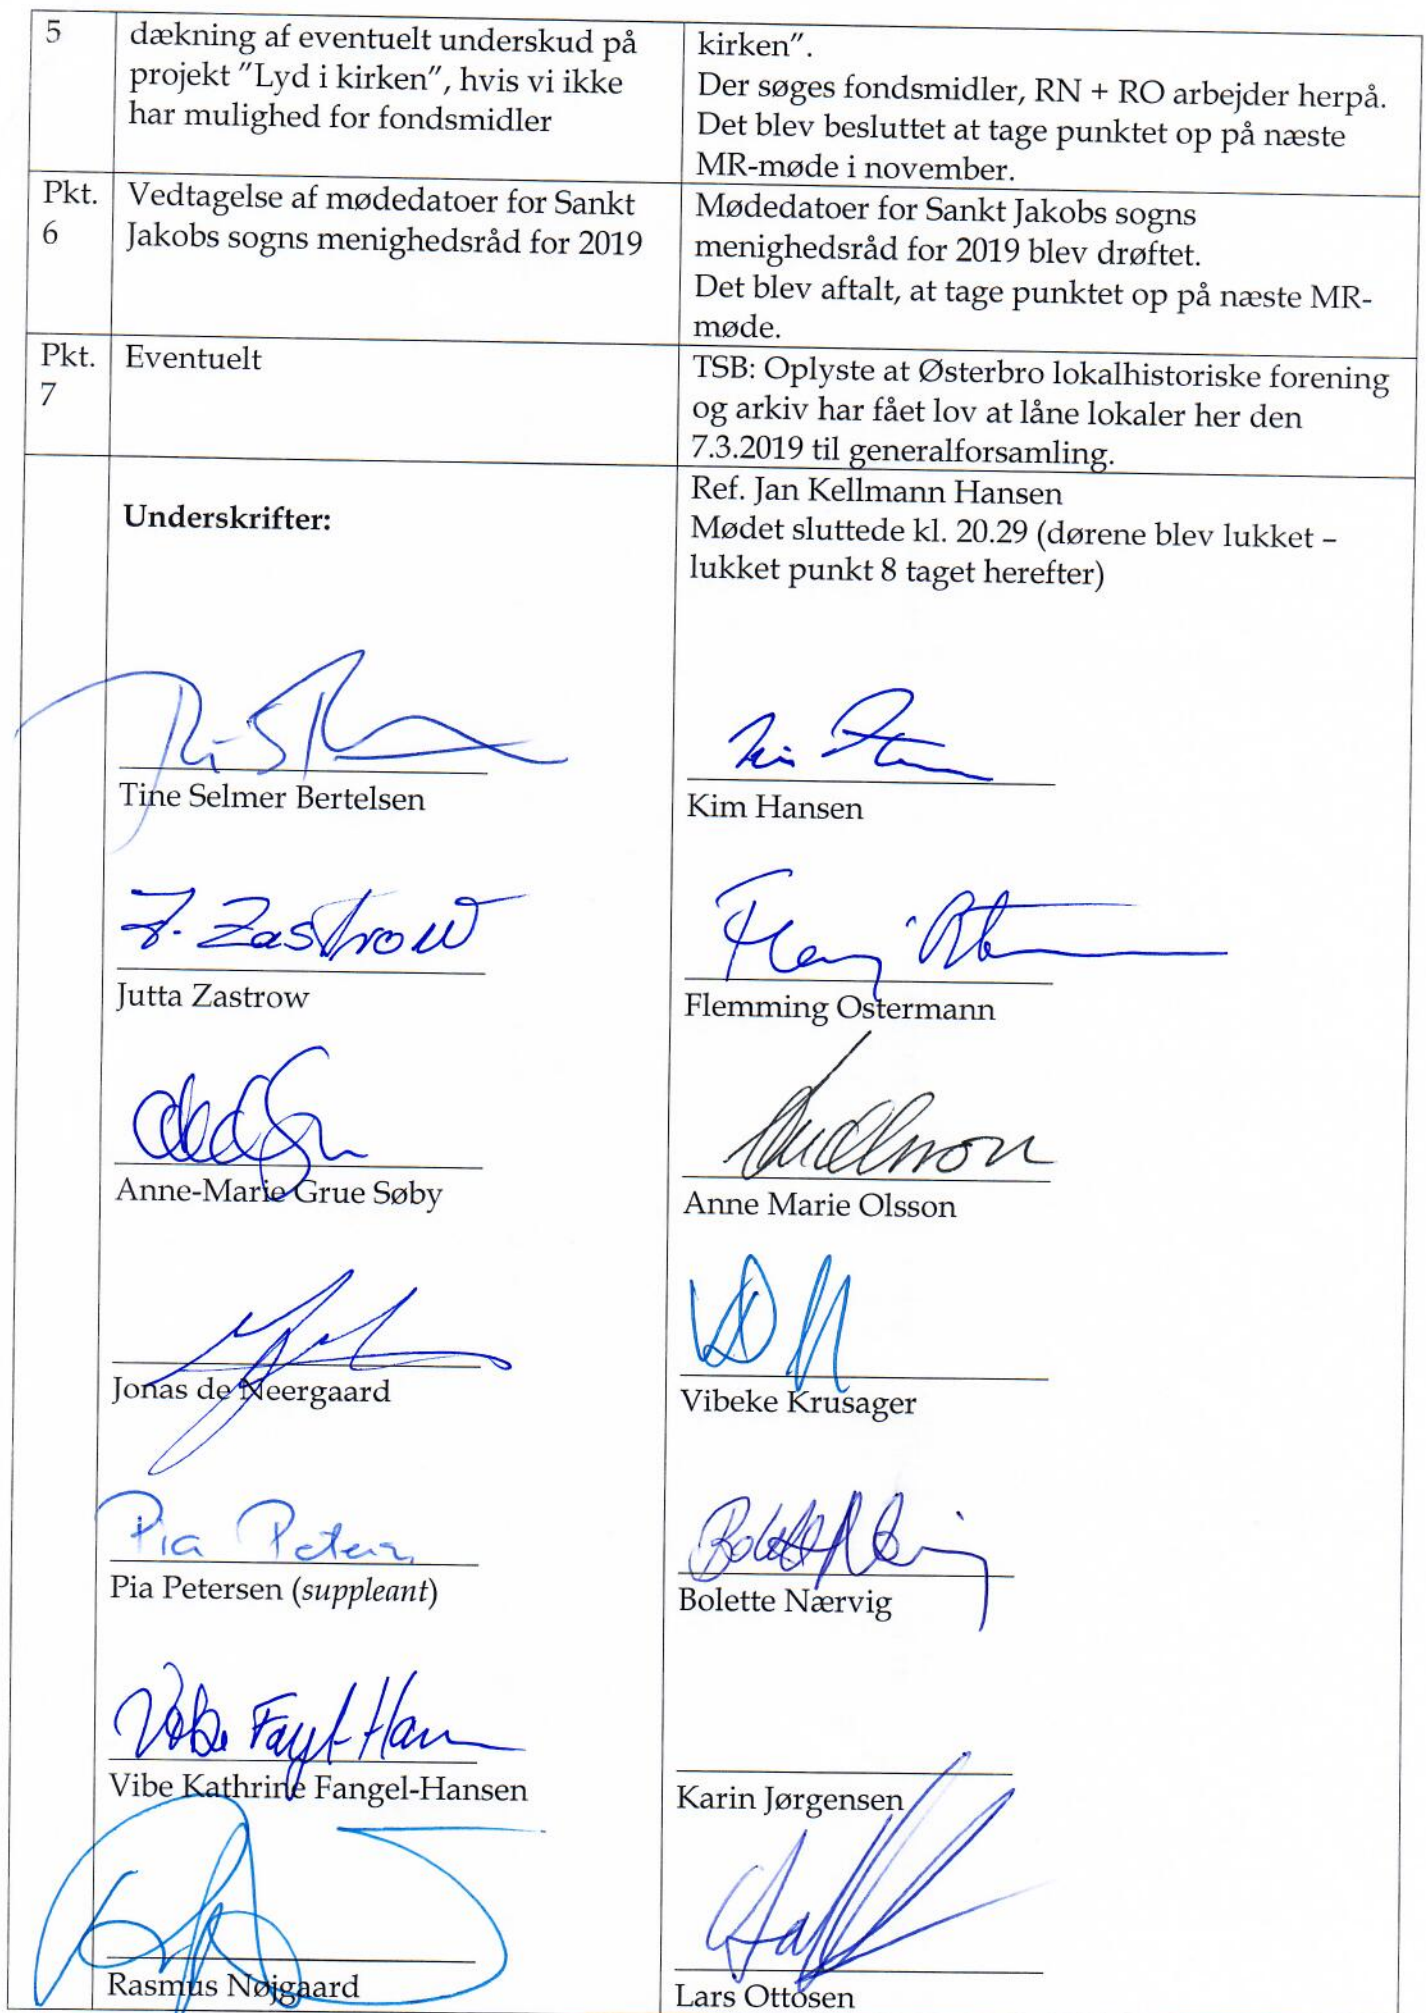 5
dækning af eventuelt underskud på
projekt "Lyd i kirken", hvis vi ikke
har mulighed for fondsmidler
kirken".
Der søges fondsmidler, RN + RO arbejder herpå.
Det blev besluttet at tage punktet op på næste
MR-møde i november.
Pkt.
6
Vedtagelse af mødedatoer for Sankt
Jakobs sogns menighedsråd for 2019
Mødedatoer for Sankt Jakobs sogns
menighedsråd for 2019 blev drøftet.
Det blev aftalt, at tage punktet op på næste MR-
møde.
Pkt.
7
Eventuelt
TSB: Oplyste at Østerbro lokalhistoriske forening
og arkiv har fået lov at låne lokaler her den
7.3.2019 til generalforsamling.
Underskrifter:
Ref. Jan Kellmann Hansen
Mødet sluttede kl. 20.29 (dørene blev lukket –
lukket punkt 8 taget herefter)
Tine Selmer Bertelsen
Kim Hansen
J. Zastrow
Jutta Zastrow
Flemming Ostermann
Anne-Marie Grue Søby
Anne Marie Olsson
Jonas de Neergaard
Vibeke Krusager
Pia
Pia Petersen (suppleant)
Bolette Nærvig
Vibe Kathrine Fangel-Hansen
Karin Jørgensen
Rasmus Nøjgaard
Lars Ottosen